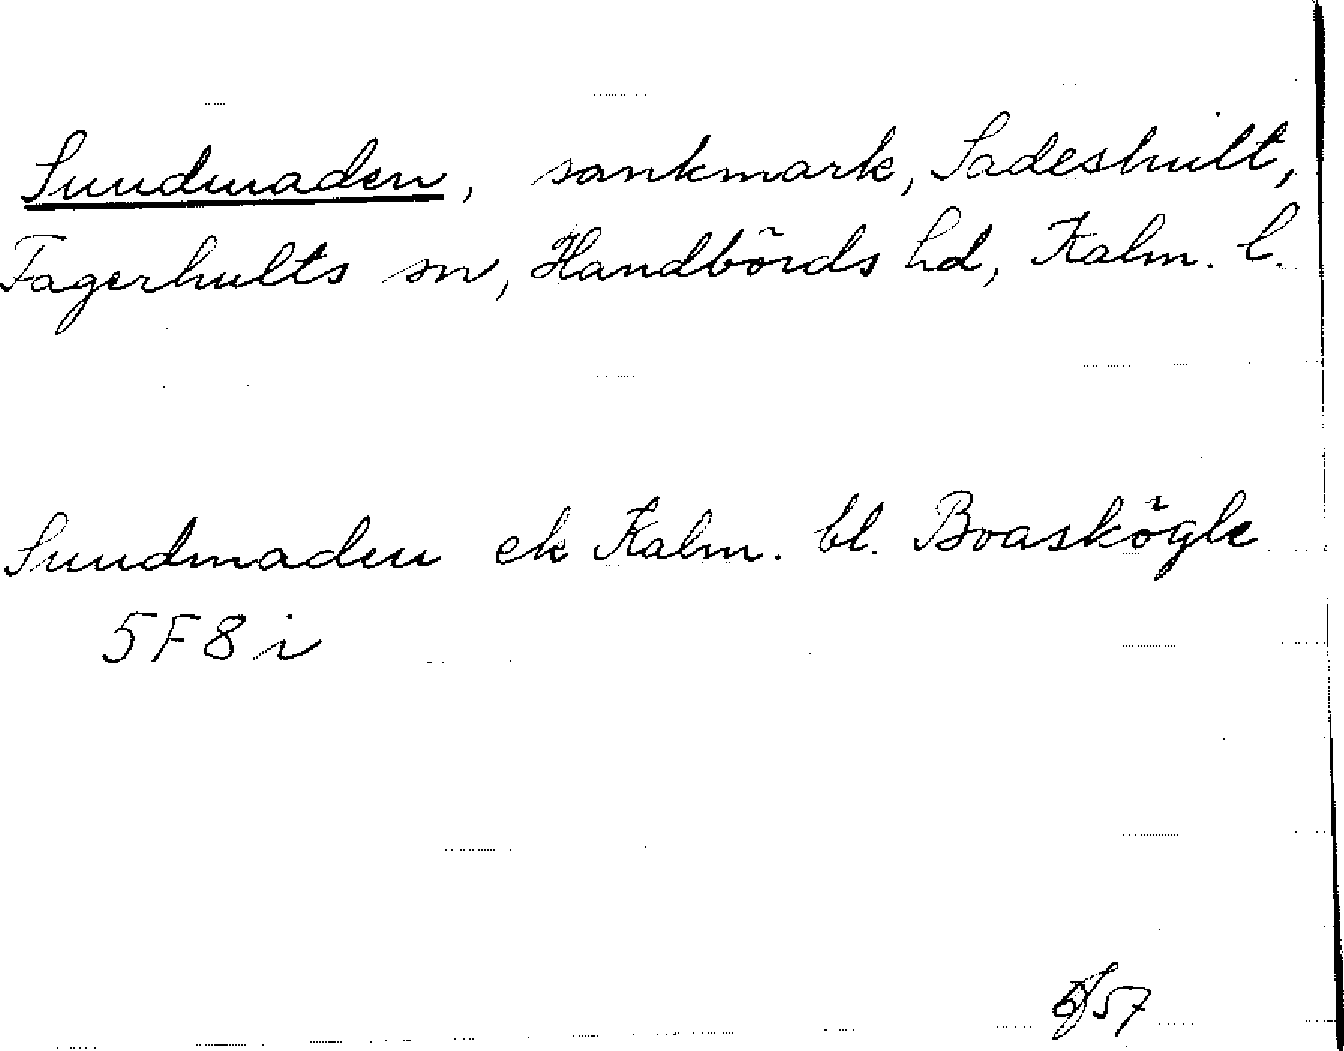 Sundmaden, sankmark, Sadeshult,
Fagerhults sn, Handbörds hd, Kalm. l.
Sundmaden ek Kalm. bl. Boaskögle
5F8i
6/57